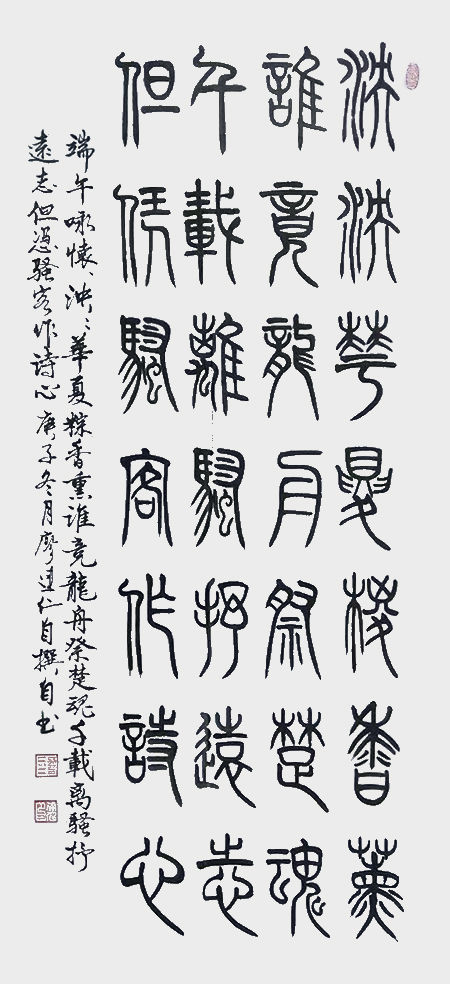 泱泱華夏粽香薰
誰竟龍舟祭楚魂
千載離騷抒遠志
但凭騷客作詩心
端午咏懷、泱々華夏粽香熏誰竟龍舟祭楚魂千載离騷抒
遠志但憑騷客作詩心庚子冬月廖達仁自撰自书